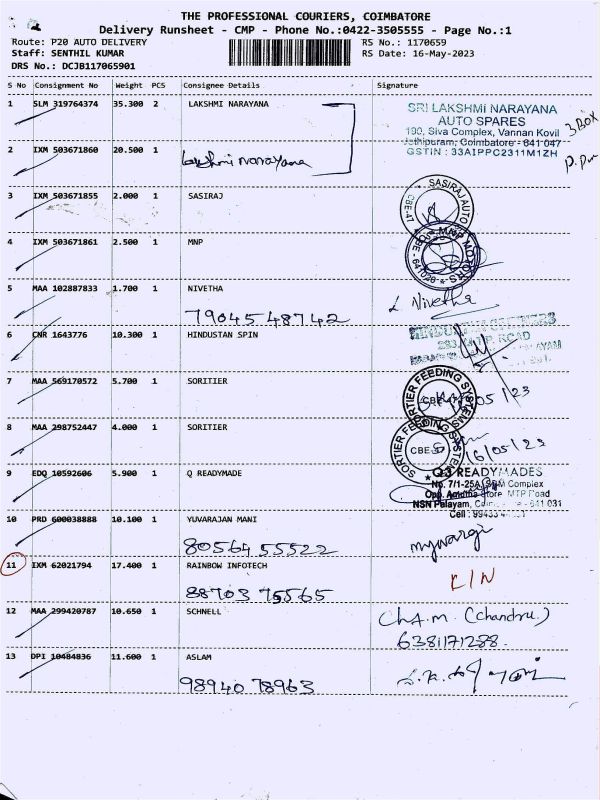 THE PROFESSIONAL COURIERS, COIMBATORE
Delivery Runsheet - CMP - Phone No.:0422-3505555 - Page No.:1
Route: P20 AUTO DELIVERY
Staff: SENTHIL KUMAR
DRS No.: DCJB117065901
RS No.: 1170659
RS Date: 16-May-2023
S No Consignment No Weight PCS Consignee Details Signature
1 SLM 319764374 35.300 2 LAKSHMI NARAYANA
SRI LAKSHMI NARAYANA
AUTO SPARES
190, Siva Complex, Vannan Kovil
Jothipuram, Coimbatore - 641 047
GSTIN : 33AIPPC2311M1ZH
3 BOX
2 IXM 503671860 20.500 1
Lakshmi narayana
3 IXM 503671855 2.000 1 SASIRAJ
SASIRAJ AUTO
4 IXM 503671861 2.500 1 MNP
MNP MOTORS
CBE - 641020
5 MAA 102887833 1.700 1 NIVETHA
79045 48742
Nivetha
6 CNR 1643776 10.300 1 HINDUSTAN SPIN
7 MAA 569170572 5.700 1 SORITIER
SORTIER FEEDING SYSTEMS
05/23
8 MAA 298752447 4.000 1 SORITIER
SORTIER FEEDING SYSTEMS
16/05/23
9 EDQ 10592606 5.900 1 Q READYMADE
Q3 READYMADES
No. 7/1-25A, Complex
Opp. Store MTP Road
NSN Palayam, - 641 031
Cell : 99433
10 PRD 600038888 10.100 1 YUVARAJAN MANI
80564 55522
11 IXM 62021794 17.400 1 RAINBOW INFOTECH
88703 75565
12 MAA 299420787 10.650 1 SCHNELL
(Chandru.)
6381171288.
13 DPI 10484836 11.600 1 ASLAM
98940 78963